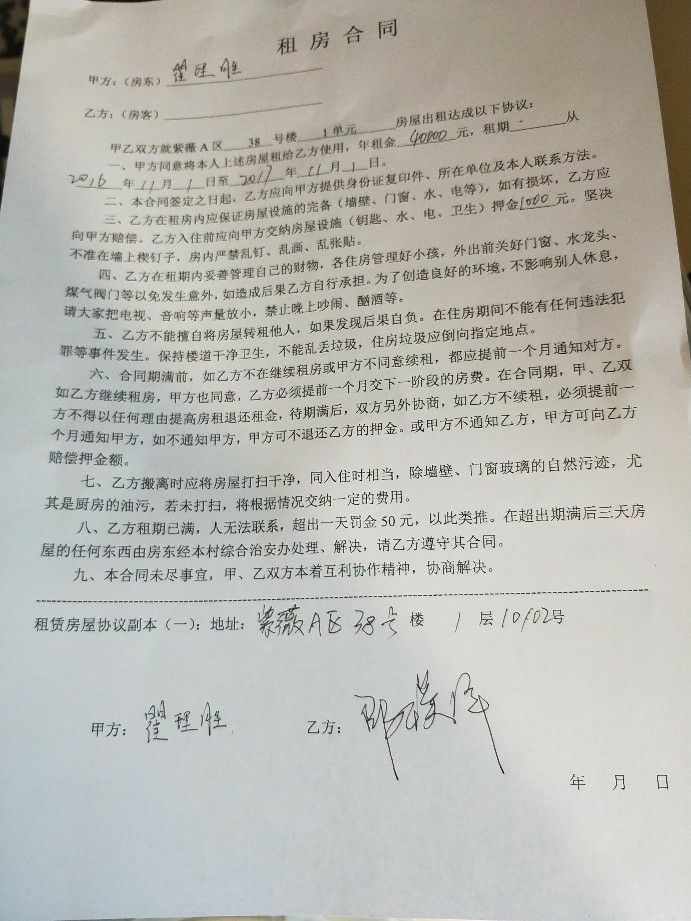 租房合同
甲方：（房东） 翟理胜
乙方：（房客）
甲乙双方就紫薇A区 38 号楼 1单元 房屋出租达成以下协议：
一、甲方同意将本人上述房屋租给乙方使用，年租金 40000 元，租期 从
2016 年 11 月 1 日至 2017 年 11 月 1 日。
二、本合同签定之日起，乙方应向甲方提供身份证复印件、所在单位及本人联系方法。
三、乙方在租房内应保证房屋设施的完备（墙壁、门窗、水、电等），如有损坏，乙方应
向甲方赔偿。乙方入住前应向甲方交纳房屋设施（钥匙、水、电、卫生）押金1000元。坚决
不准在墙上楔钉子，房内严禁乱钉、乱画、乱张贴。
四、乙方在租期内妥善管理自己的财物，各住房管理好小孩，外出前关好门窗、水龙头、
煤气阀门等以免发生意外，如造成后果乙方自行承担。为了创造良好的环境，不影响别人休息，
请大家把电视、音响等声量放小，禁止晚上吵闹、酗酒等。
五、乙方不能擅自将房屋转租他人，如果发现后果自负。在住房期间不能有任何违法犯
罪等事件发生。保持楼道干净卫生，不能乱丢垃圾，住房垃圾应倒向指定地点。
六、合同期满前，如乙方不在继续租房或甲方不同意续租，都应提前一个月通知对方。
如乙方继续租房，甲方也同意，乙方必须提前一个月交下一阶段的房费。在合同期，甲、乙双
方不得以任何理由提高房租退还租金，待期满后，双方另外协商，如乙方不续租，必须提前一
个月通知甲方，如不通知甲方，甲方可不退还乙方的押金。或甲方不通知乙方，甲方可向乙方
赔偿押金额。
七、乙方搬离时应将房屋打扫干净，同入住时相当，除墙壁、门窗玻璃的自然污迹，尤
其是厨房的油污，若未打扫，将根据情况交纳一定的费用。
八、乙方租期已满，人无法联系，超出一天罚金50元，以此类推。在超出期满后三天房
屋的任何东西由房东经本村综合治安办处理、解决，请乙方遵守其合同。
九、本合同未尽事宜，甲、乙双方本着互利协作精神，协商解决。
租赁房屋协议副本（一）：地址：紫薇A区 38号 楼 1 层 10102号
甲方：翟理胜 乙方：
年 月 日